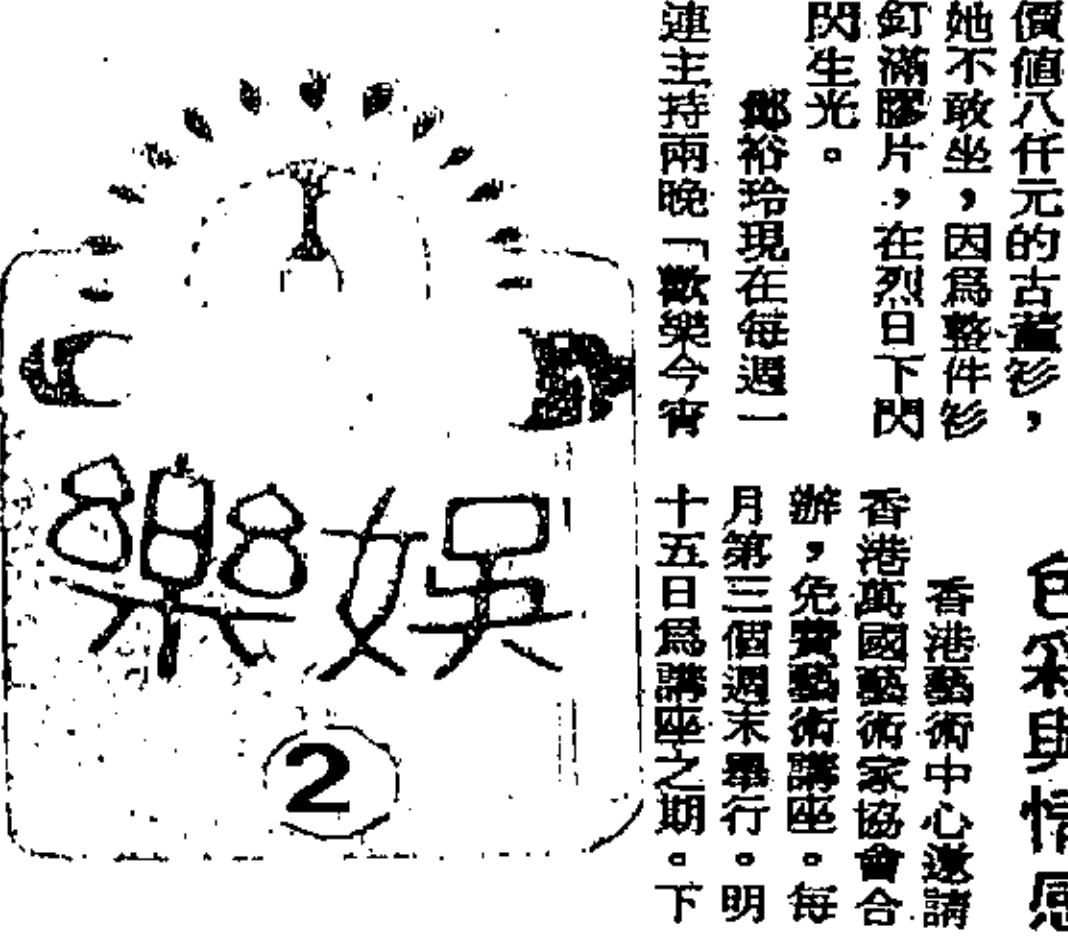 價值八仟元的古董衫，
她不敢坐，因爲整件衫
釘滿膠片，在烈日下閃
閃生光。
鄭裕玲現在每週一
連主持兩晚「歡樂今宵
色彩與情感
香港藝術中心邀請
香港萬國藝術家協會合
辦，免費藝術講座。每
月第三個週末舉行。明
十五日爲講座之期。下
娛樂
2